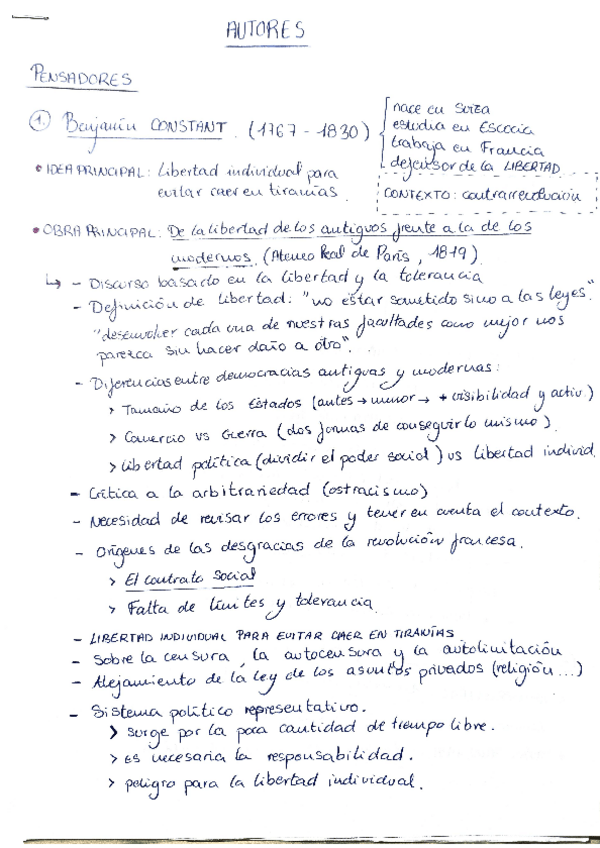 AUTORES
PENSADORES
1. Benjamin CONSTANT. (1767 - 1830)
nace en Suiza
estudia en Escocia
trabaja en Francia
defensor de la LIBERTAD
• IDEA PRINCIPAL: Libertad individual para
evitar caer en tiranías.
CONTEXTO: contrarrevolución
• OBRA PRINCIPAL: De la libertad de los antiguos frente a la de los
modernos. (Ateneo Real de París, 1819)
↳ - Discurso basado en la libertad y la tolerancia
- Definición de libertad: "no estar sometido sino a las leyes".
"desenvolver cada una de nuestras facultades como mejor nos
parezca sin hacer daño a otro".
- Diferencias entre democracias antiguas y modernas:
> Tamaño de los Estados (antes → menor → + visibilidad y activ.)
> Comercio vs Guerra (dos formas de conseguir lo mismo).
> libertad política (dividir el poder social) vs libertad individ.
- Crítica a la arbitrariedad (ostracismo)
- Necesidad de revisar los errores y tener en cuenta el contexto.
- Orígenes de las desgracias de la revolución francesa.
> El contrato social
> Falta de límites y tolerancia
- LIBERTAD INDIVIDUAL PARA EVITAR CAER EN TIRANÍAS
- Sobre la censura, la autocensura y la autolimitación
- Alejamiento de la ley de los asuntos privados (religión...)
- Sistema político representativo.
> surge por la poca cantidad de tiempo libre.
> es necesaria la responsabilidad.
> peligro para la libertad individual.